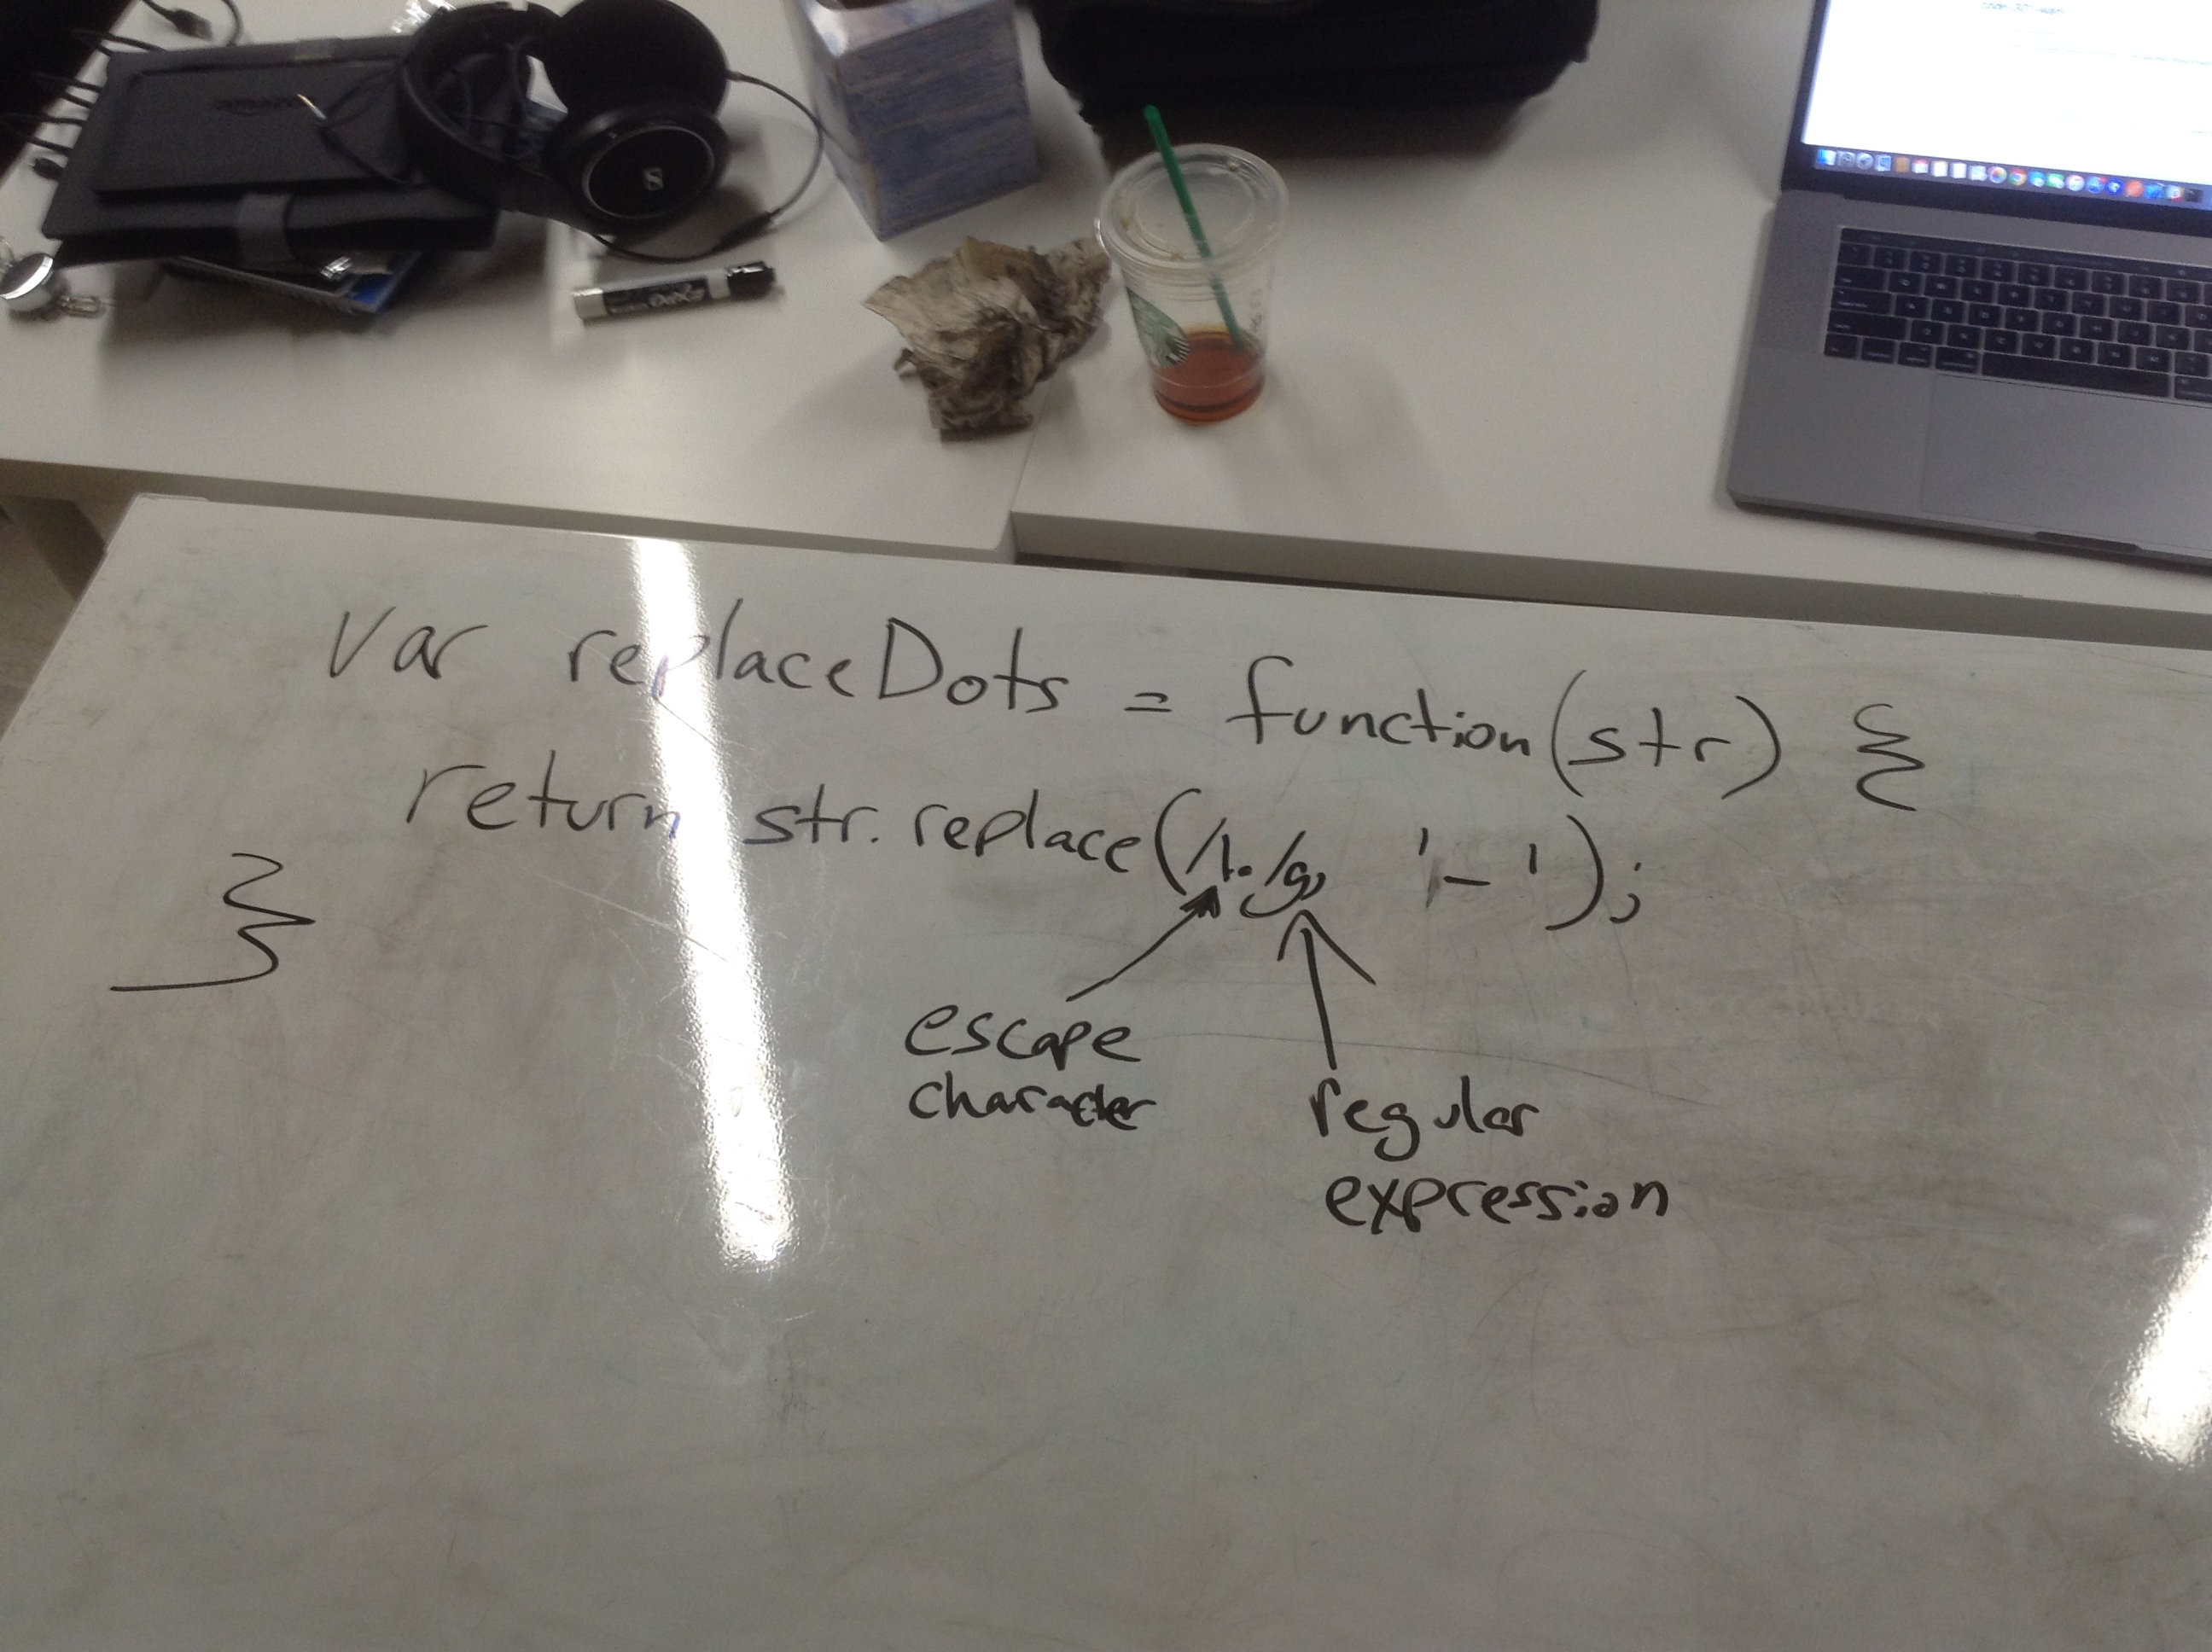 amazon
EXPO
var replaceDots = function(str) {
return str.replace(/\./g, '-');
}
escape
character
regular
expression